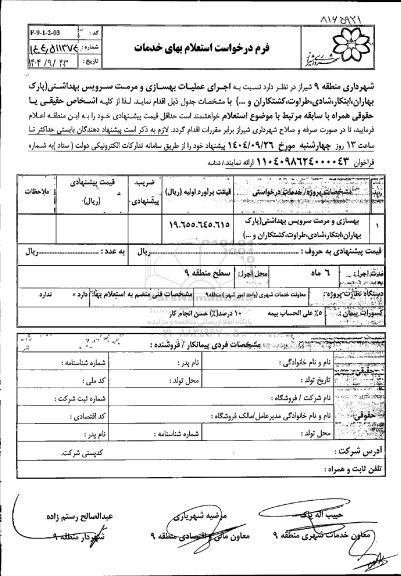 ۸۱۶۵۹۲۱
فرم درخواست استعلام بهای خدمات
کد : F-9-1-2-03
شماره :
تاریخ : ۱۴۰۴/۹/۲۳
شهرداری منطقه ۹ شیراز در نظر دارد نسبت به اجرای عملیات بهسازی و مرمت سرویس بهداشتی(پارک
بهاران،ابتکار،شادی،طراوت،کشتکاران و ...) با مشخصات جدول ذیل اقدام نماید. لذا از کلیه اشخاص حقیقی یا
حقوقی همراه با سابقه مرتبط با موضوع استعلام خواهشمند است حداقل قیمت پیشنهادی خود را به این منطقه اعلام
فرمایید، تا در صورت صرفه و صلاح شهرداری شیراز برابر مقررات اقدام گردد. لازم به ذکر است پیشنهاد دهندگان بایستی حداکثر تا
ساعت ۱۳ روز چهارشنبه مورخ ۱۴۰۴/۰۹/۲۶ پیشنهاد خود را از طریق سامانه تدارکات الکترونیکی دولت ( ستاد )به شماره
فراخوان ۱۱۰۴۰۹۸۶۲۴۰۰۰۰۴۳ ارائه نمایند.
مشخصات پروژه/ خدمات درخواستی
قیمت برآورد اولیه (ریال)
ضریب پیشنهادی
قیمت پیشنهادی (ریال)
ملاحظات
۱
بهسازی و مرمت سرویس بهداشتی(پارک
بهاران،ابتکار،شادی،طراوت،کشتکاران و ...)
۱۹.۶۵۵.۶۴۵.۶۱۵
قیمت پیشنهادی به حروف : ریال به عدد : ریال
مدت اجرا: ۶ ماه محل اجرا: سطح منطقه ۹
دستگاه نظارت پروژه: معاونت خدمات شهری (واحد امور شهر) منطقه۹ مشخصات فنی منضم به استعلام بهاء: دارد × ندارد
کسورات پیمان : ۵٪ علی الحساب بیمه ۱۰ درصد(٪) حسن انجام کار
مشخصات فردی پیمانکار / فروشنده :
حقیقی
نام و نام خانوادگی : نام پدر : شماره شناسنامه :
تاریخ تولد : محل تولد : کد ملی :
حقوقی
نام شرکت / فروشگاه : شماره ثبت شرکت :
نام و نام خانوادگی مدیرعامل/مالک فروشگاه : کد اقتصادی :
محل تولد : شماره شناسنامه : نام پدر :
آدرس شرکت : کدپستی شرکت.
تلفن ثابت و همراه :
حبیب اله پاک
معاون خدمات شهری منطقه ۹
مرضیه شهریاری
معاون مالی و اقتصادی منطقه ۹
عبدالصالح رستم زاده
شهردار منطقه ۹